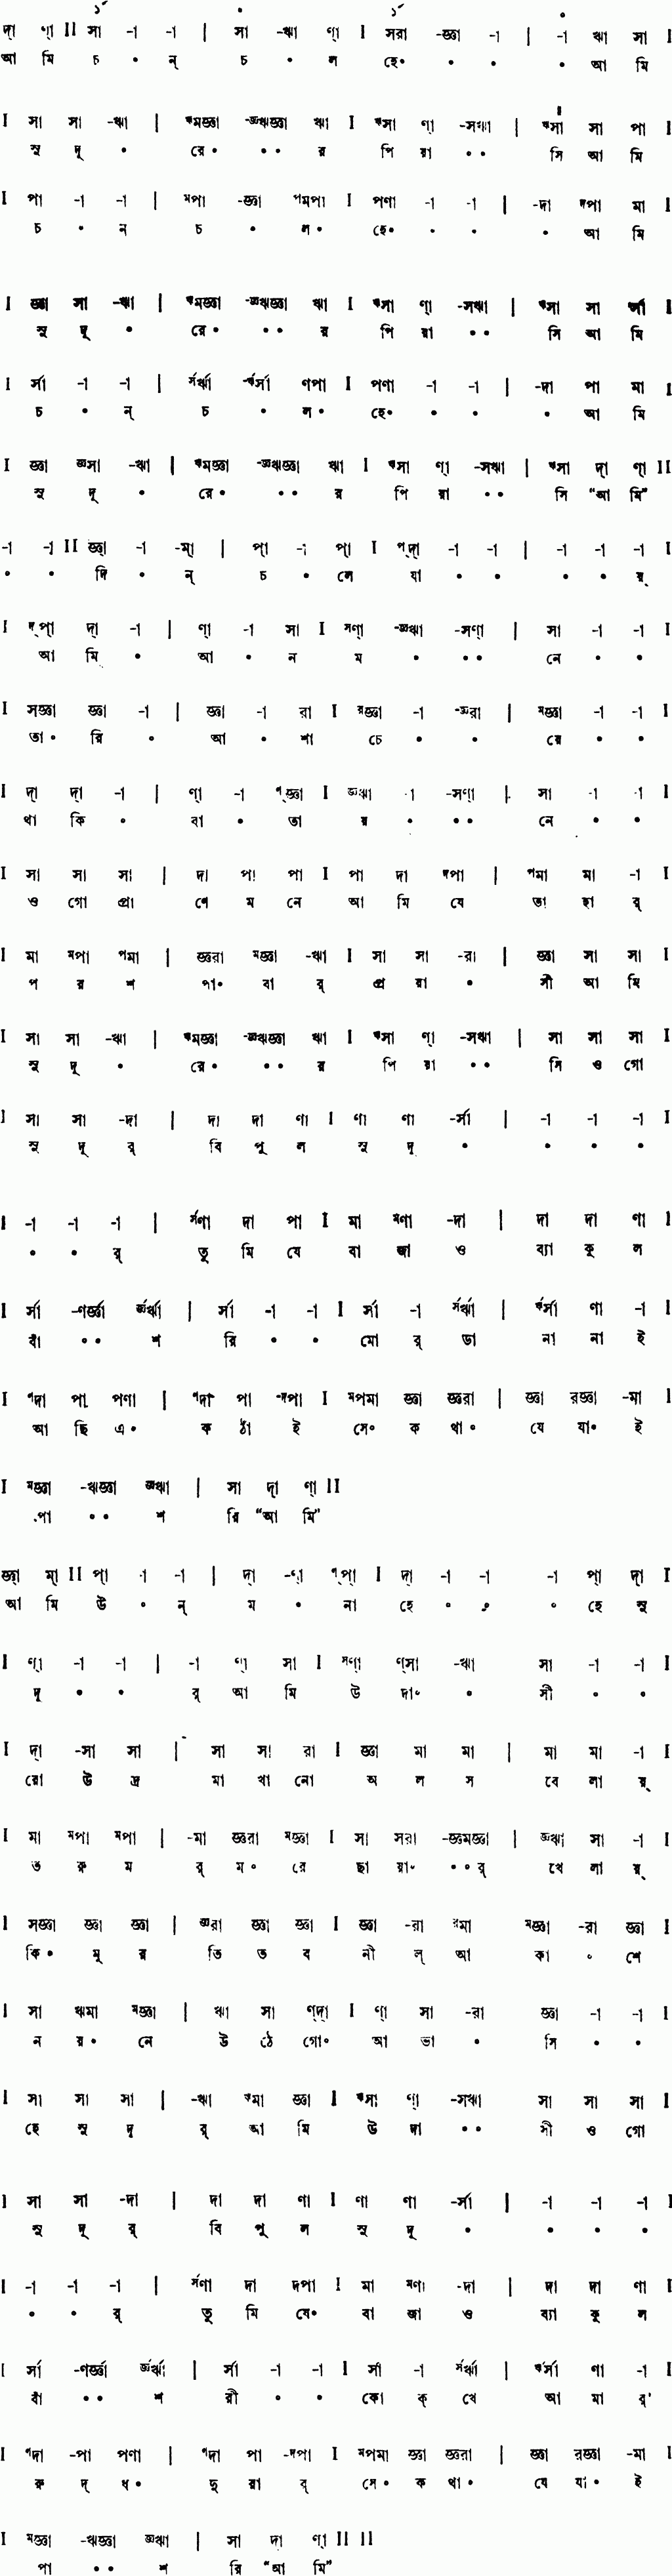 দা্ ণা্ II সা -া -া | সা -ঋা ণা্ I সরা -জ্ঞা -া | -া ঋা সা I
আ মি চ • ন্ চ • ল হে• • • • আ মি
I সা সা -ঋা | ঋমজ্ঞা -জ্ঞঋজ্ঞা ঋা I ঋসা ণা্ -সঋা | ঋসা সা পা I
সু দূ • রে• •• র পি য়া •• সি আ মি
I পা -া -া | মপা -জ্ঞা পমপা I পণা -া -া | -দা দপা মা I
চ • ন চ • ল• হে• • • • আ মি
I জ্ঞা সা -ঋা | ঋমজ্ঞা -জ্ঞঋজ্ঞা ঋা I ঋসা ণা্ -সঋা | ঋসা সা র্সা I
সু দূ • রে• •• র পি য়া •• সি আ মি
I র্সা -া -া | র্সর্ঋা -র্ঋর্সা ণপা I পণা -া -া | -দা পা মা I
চ • ন্ চ • ল• হে• • • • আ মি
I জ্ঞা জ্ঞসা -ঋা | ঋমজ্ঞা -জ্ঞঋজ্ঞা ঋা I ঋসা ণা্ -সঋা | ঋসা দা্ ণা্ II
সু দূ • রে• •• র পি য়া •• সি “আ মি”
-া -া II জ্ঞা্ -া -মা্ | পা্ -া পা্ I পদা্ -া -া | -া -া -া I
• • দি • ন্ চ • লে যা • • • • য়্
I দপা্ দা্ -া | ণা্ -া সা I সণা্ -জ্ঞঋা -সণা্ | সা -া -া I
আ মি • আ • ন ম • •• নে • •
I সজ্ঞা জ্ঞা -া | জ্ঞা -া রা I রজ্ঞা -া -মরা | মজ্ঞা -া -া I
তা• রি • আ • শা চে • • য়ে • •
I দা্ দা্ -া | ণা্ -া ণ্জ্ঞা I জ্ঞঋা -া -সণা্ | সা -া -া I
থা কি • বা • তা য় • •• নে • •
I সা সা সা | দা পা পা I পা দা দপা | পমা মা -া I
ও গো প্রা ণে ম নে আ মি যে তা হা র্
I মা মপা পমা | জ্ঞরা মজ্ঞা -ঋা I সা সা -রা | জ্ঞা সা সা I
প র শ পা• বা র্ প্র য়া • সী আ মি
I সা সা -ঋা | ঋমজ্ঞা -জ্ঞঋজ্ঞা ঋা I ঋসা ণা্ -সঋা | সা সা সা I
সু দূ • রে• •• র পি য়া •• সি ও গো
I সা সা -দা | দা দা ণা I ণা ণা -র্সা | -া -া -া I
সু দূ র্ বি পু ল সু দূ • • • •
I -া -া -া | র্সণা দা পা I মা মণা -দা | দা দা ণা I
• • র্ তু মি যে বা জা ও ব্যা কু ল
I র্সা -ণর্জ্ঞা র্জ্ঞর্ঋা | র্সা -া -া I র্সা -া র্সর্ঋা | র্ঋর্সা ণা -া I
বাঁ •• শ রি • • মো র্ ডা না না ই
I ণদা পা পণা | ণদা পা -দপা I মপমা জ্ঞা জ্ঞরা | জ্ঞা রজ্ঞা -মা I
আ ছি এ• ক ঠাঁ ই সে• ক থা• যে যা• ই
I মজ্ঞা -ঋজ্ঞা জ্ঞঋা | সা দা্ ণা্ II
পা •• শ রি “আ মি”
জ্ঞা্ মা্ II পা্ -া -া | দা্ -ণা্ ণপা্ I দা্ -া -া -া পা্ দা্ I
আ মি উ • ন্ ম • না হে • • • হে সু
I ণা্ -া -া | -া ণা্ সা I সণা্ ণ্সা -ঋা সা -া -া I
দূ • • র্ আ মি উ দা• • সী • •
I দা্ -সা সা | সা সা রা I জ্ঞা মা মা | মা মা -া I
রৌ উ দ্র মা খা নো অ ল স বে লা য়্
I মা মপা মপা | -মা জ্ঞরা মজ্ঞা I সা সরা -জ্ঞমজ্ঞা | জ্ঞঋা সা -া I
ত রু ম র্ ম• রে ছা য়া• ••র্ খে লা য়্
I সজ্ঞা জ্ঞা জ্ঞা | জ্ঞরা জ্ঞা জ্ঞা I জ্ঞা -রা রমা মজ্ঞা -রা জ্ঞা I
কি• মূ র তি ত ব নী ল্ আ কা • শে
I সা ঋমা মজ্ঞা | ঋা সা ণ্দা্ I ণা্ সা -রা জ্ঞা -া -া I
ন য়• নে উ ঠে গো• আ ভা • সি • •
I সা সা সা | -ঋা ঋমা জ্ঞা I ঋসা ণা্ -সঋা সা সা সা I
হে সু দূ র্ আ মি উ দা •• সী ও গো
I সা সা -দা | দা দা ণা I ণা ণা -র্সা | -া -া -া I
সু দূ র্ বি পু ল সু দূ • • • •
I -া -া -া | র্সণা দা দপা I মা মণা -দা | দা দা ণা I
• • র্ তু মি যে• বা জা ও ব্যা কু ল
I র্সা -ণর্জ্ঞা র্জ্ঞর্ঋা | র্সা -া -া I র্সা -া র্সর্ঋা | র্ঋর্সা ণা -া I
বাঁ •• শ রী • • কো ক্ খে আ মা র্
I ণদা -পা পণা | ণদা পা -দপা I মপমা জ্ঞা জ্ঞরা | জ্ঞা রজ্ঞা -মা I
রু দ্ ধ• দু য়া র্ সে• ক থা• যে যা• ই
I মজ্ঞা -ঋজ্ঞা জ্ঞঋা | সা দা্ ণা্ II II
পা •• শ রি “আ মি”